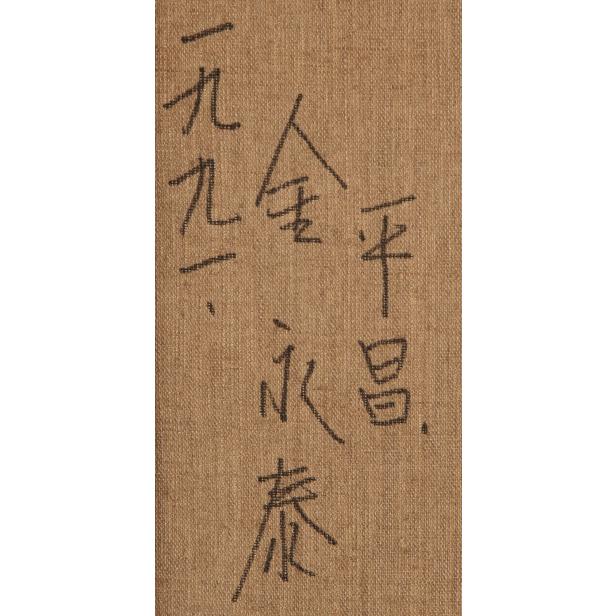 平昌.
金永泰
一九九一.